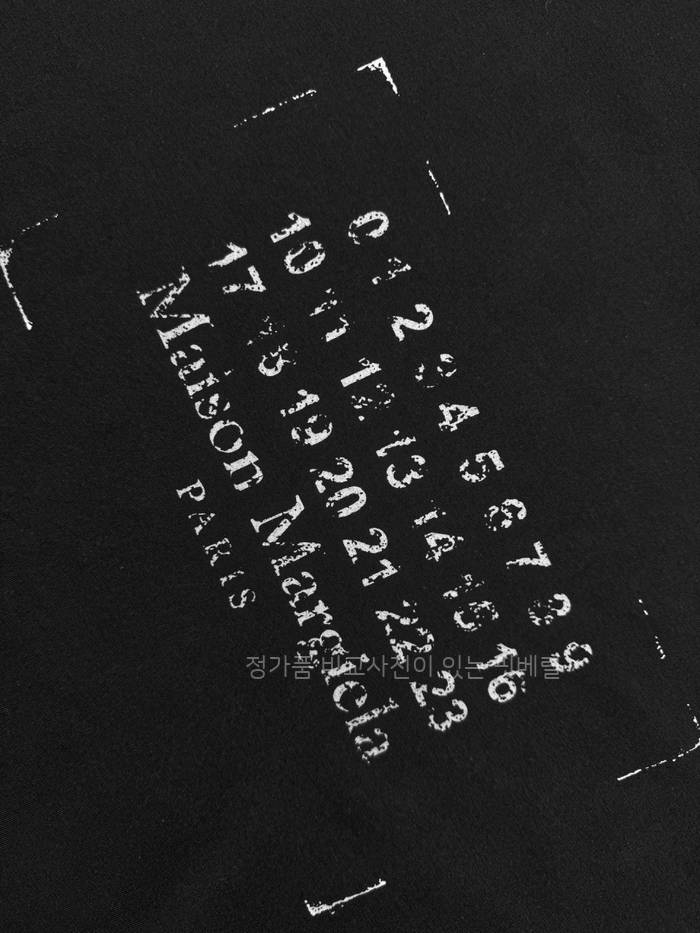 0 1 2 3 4 5 6 7 8 9
10 11 12 13 14 15 16
17 18 19 20 21 22 23
Maison Margiela
PARIS
정가품 비교사진이 있는 리베럴